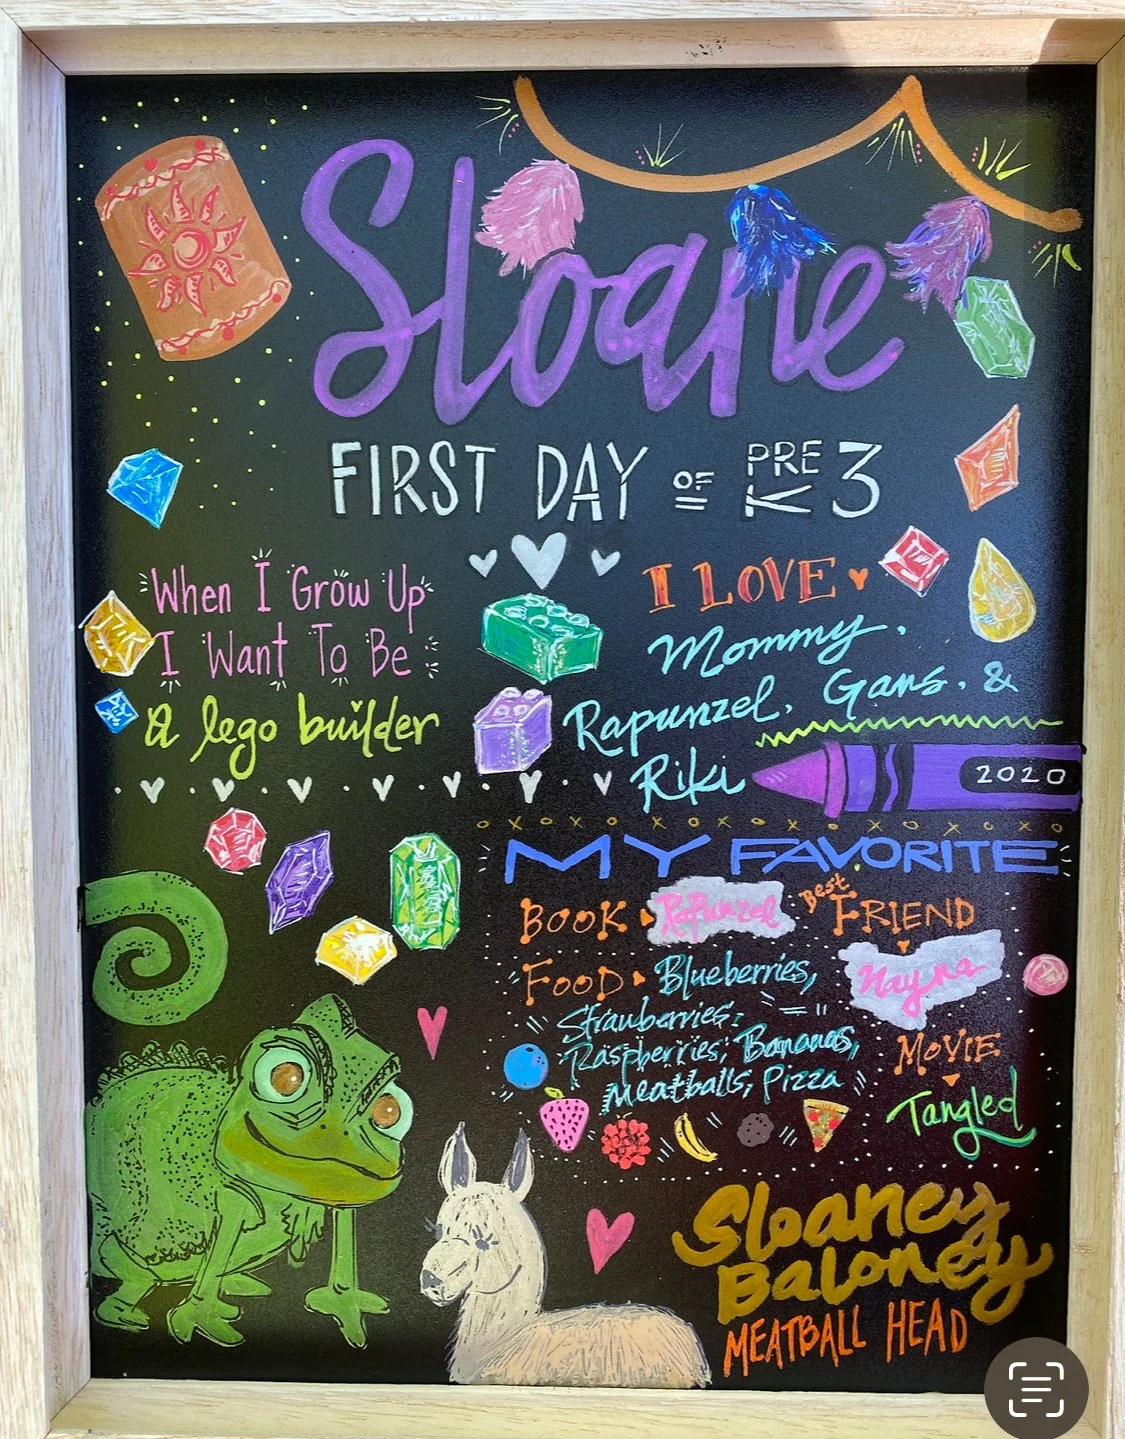 Sloane
FIRST DAY OF PRE K 3
When I Grow Up
I Want To Be
A lego builder
I LOVE
Mommy,
Rapunzel, Gams, &
Riki
2020
xoxoxoxoxoxoxoxo
MY FAVORITE
BOOK Rapunzel
Best FRIEND
Nayna
FOOD Blueberries,
Strawberries,
Raspberries, Bananas,
Meatballs, Pizza
MOVIE
Tangled
Sloaney
Baloney
MEATBALL HEAD